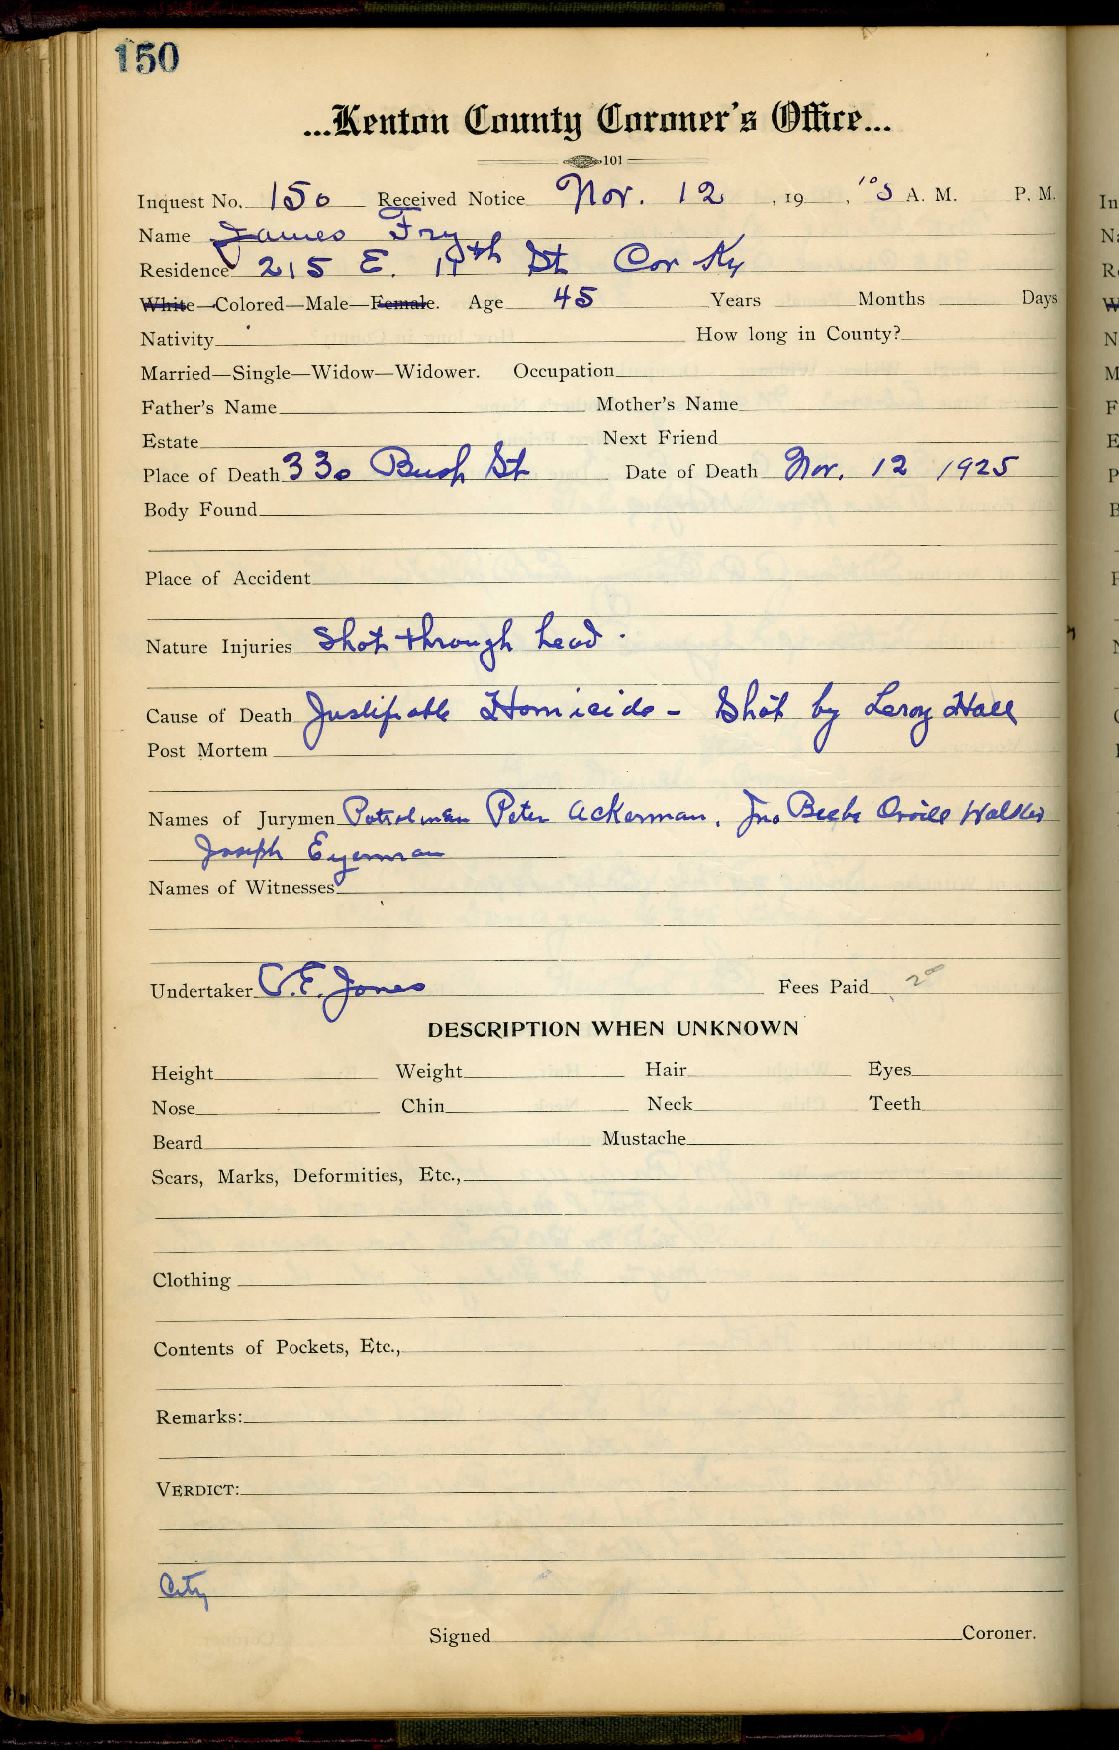 150
...Kenton County Coroner's Office...
101
Inquest No. 150 Received Notice Nov. 12 , 19 , A. M. P. M.
Name James Fry
Residence 215 E. 11th St Cov Ky
White—Colored—Male—Female. Age 45 Years Months Days
Nativity How long in County?
Married—Single—Widow—Widower. Occupation
Father's Name Mother's Name
Estate Next Friend
Place of Death 330 Bush St Date of Death Nov. 12 1925
Body Found
Place of Accident
Nature Injuries Shot through head.
Cause of Death Justifiable Homicide - Shot by Leroy Hall
Post Mortem
Names of Jurymen Patrolman Peter Ackerman, Jno Beebe Orville Walker
Joseph Eyerman
Names of Witnesses
Undertaker C.E. Jones Fees Paid
DESCRIPTION WHEN UNKNOWN
Height Weight Hair Eyes
Nose Chin Neck Teeth
Beard Mustache
Scars, Marks, Deformities, Etc.,
Clothing
Contents of Pockets, Etc.,
Remarks:
VERDICT:
City
Signed Coroner.